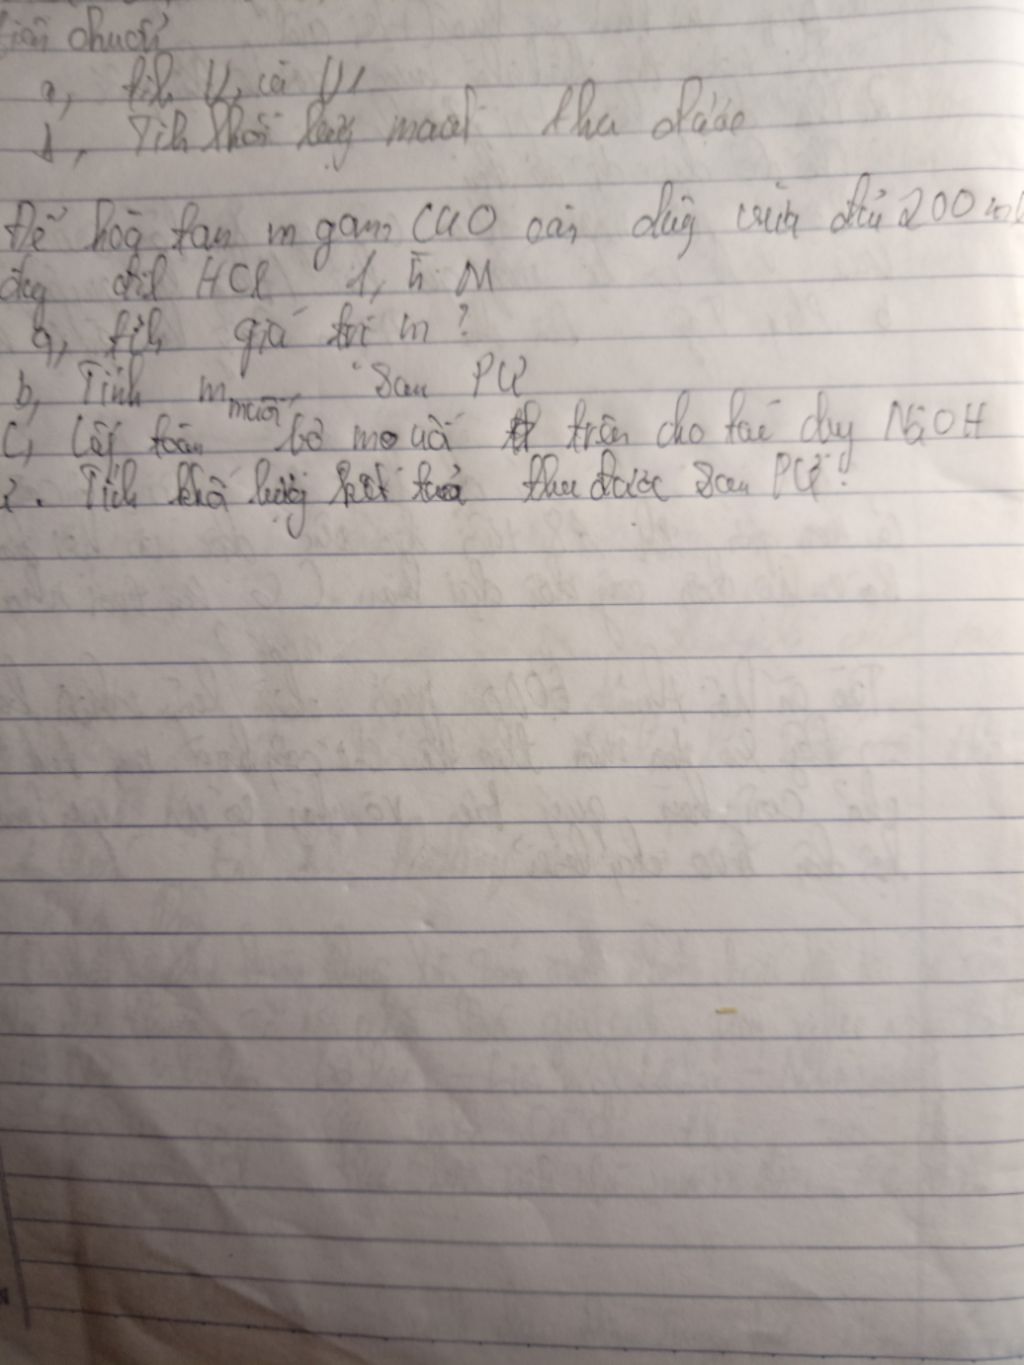 chuẩn
a, tính V, và V1
1, Tính khối lượng muối thu được
Để hòa tan m gam CuO cần dùng vừa đủ 200 ml
dung dịch HCl 1,5 M
a, tính giá trị m?
b, Tính m muối sau PƯ
C, Lấy toàn bộ muối trên cho tác dụng NaOH
. Tính khối lượng kết tủa thu được sau PƯ?